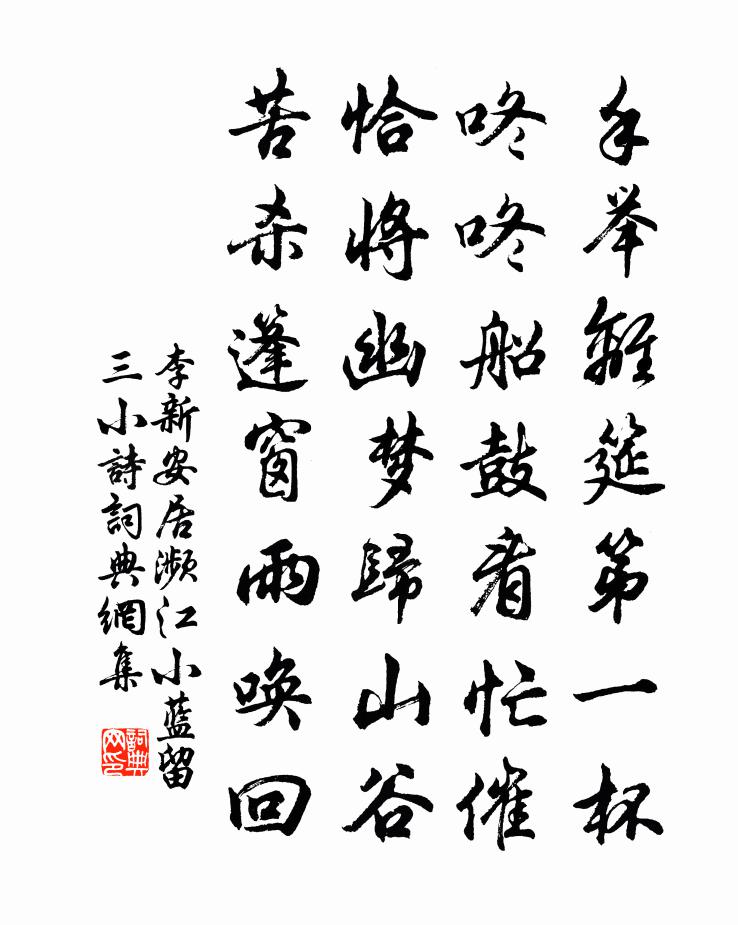 手举離筵第一杯
咚咚船鼓看忙催
恰将幽梦歸山谷
苦杀篷窗雨唤回
李新安居瀕江小藍留
三小詩詞典網集
詞典
网印